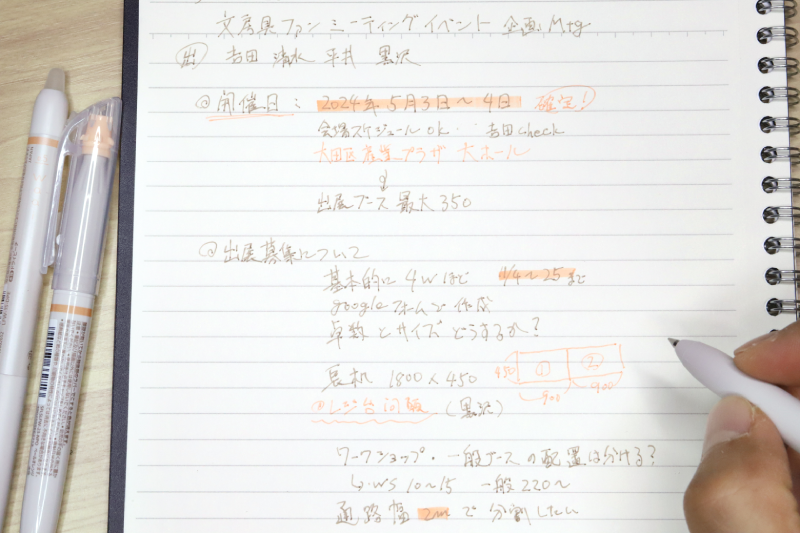 文房具ファンミーティングイベント企画Mtg
出 吉田 清水 平井 黒沢
@開催日: 2024年5月3日〜4日 確定!
会場スケジュールOK. 吉田check
大田区産業プラザ 大ホール
↓
出展ブース最大350
@出展募集について
基本的に4wほど 1/4〜25まで
googleフォームで作成
卓数とサイズどうするか?
長机 1800×450
450 ① ②
900 900
@レジ台問題 (黒沢)
ワークショップ・一般ブースの配置は分ける?
↳WS 10〜15 一般220〜
通路幅2mで分割したい